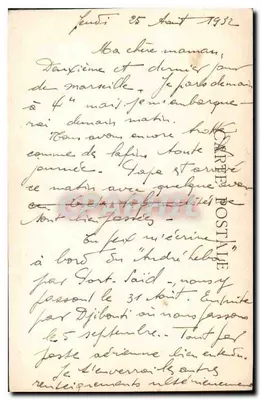 Jeudi 25 Août 1932
Ma chère maman,
Deuxième et dernier jour
de Marseille. Je pars demain
à 4h mais j'embarque-
rai demain matin.
Nous avons encore trotté
comme des lapins toute la
journée. Papa est arrivé
ce matin avec quelque
sont bien passées.
Tu peux m'écrire
à bord du "André Lebon"
par Port-Saïd, nous y
passons le 31 Août. Ensuite
par Djibouti où nous passons
le 5 septembre. Tout par
poste aérienne bien entendu.
Je t'enverrai les autres
renseignements ultérieurement
CARTE POSTALE